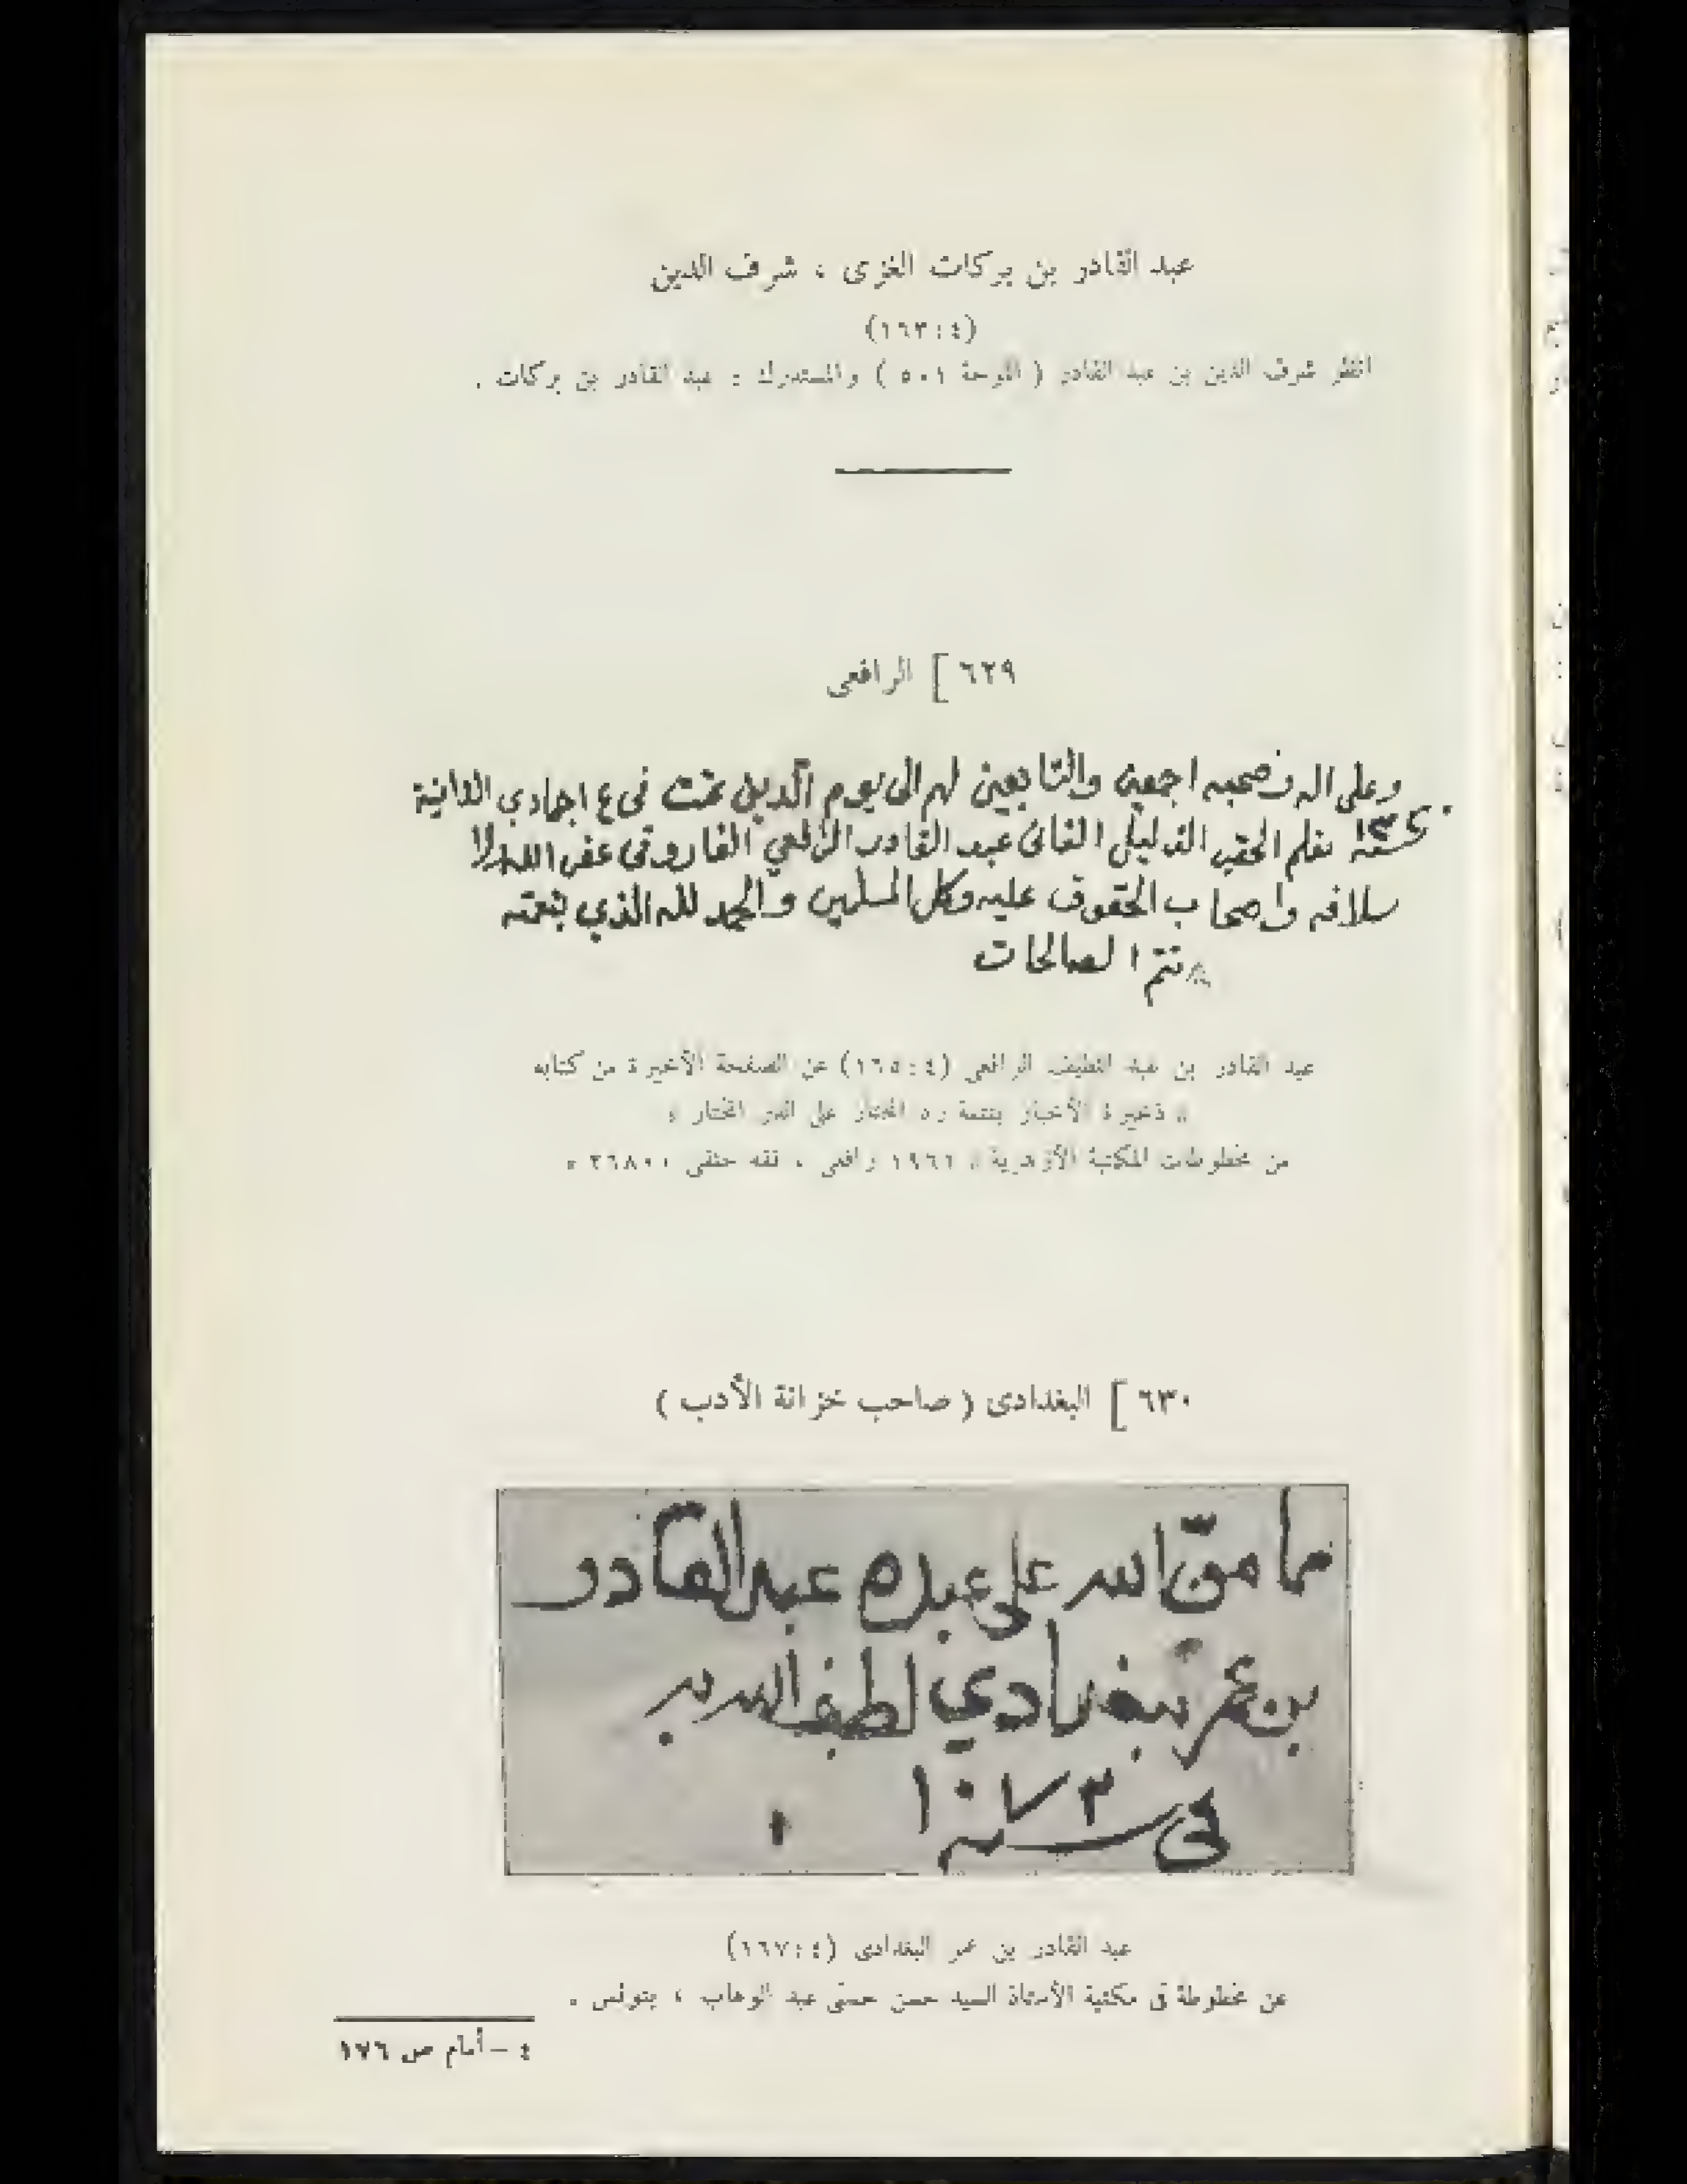 عبد القادر بن بركات الغزى ، شرف الدين
(٤ : ١٦٣)
انظر شرف الدين بن عبد القادر ( اللوحة ٥٠١ ) والمستدرك : عبد القادر بن بركات .
٦٢٩ ] الرافعى
وعلى اله وصحبه اجمعين والتابعين لهم الى يوم الدين تمت فى ٤ اجمادي الثانية
سنة بقلم الحقير الذليل الفانى عبد القادر الرافعي الفاروقى عفى الله
سلافه واصحاب الحقوق عليه وكل المسلمين والحمد لله الذي بنعمته
تتم الصالحات
عبد القادر بن عبد اللطيف الرافعى (٤ : ١٦٥) عن الصفحة الأخيرة من كتابه
« ذخيرة الأخيار بتتمة رد المحتار على الدر المختار »
من مخطوطات المكتبة الأزهرية « ١٩٦٦ رافعى ، فقه حنفى ٢٦٨٠٠ »
٦٣٠ ] البغدادى ( صاحب خزانة الأدب )
مما منّ الله على عبده عبد القادر
بن عمر البغدادي لطف الله به
فى سنة ١٠٧٣
عبد القادر بن عمر البغدادى (٤ : ١٦٧)
عن مخطوطة فى مكتبة الأستاذ السيد حسن حسنى عبد الوهاب ، بتونس .
٤ – أمام ص ١٧٦